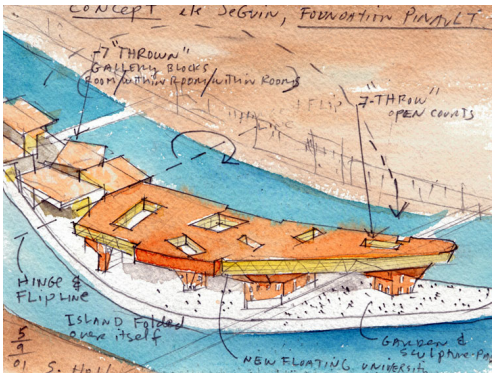 CONCEPT ile SeGUIN, FOUNDATION PINAULT
-7 "THROWN"
GALLERY BLOCKS
ROOM/WITHIN ROOM/WITHIN ROOMS
FLIP
7-"THROW"
OPEN COURTS
HINGE &
FLIP LINE
ISLAND FOLDED
over itself
5
9
01 S. Holl
NEW FLOATING UNIVERSITY
GARDEN &
Sculpture-Pa